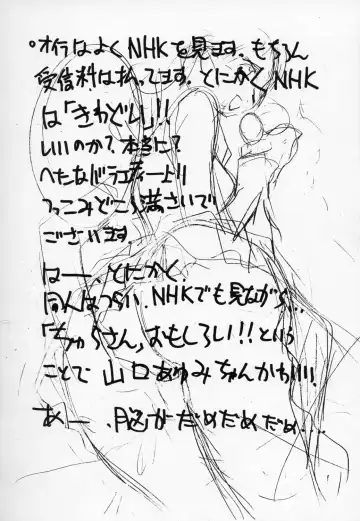 。オイラはよくNHKを見ます。もちろん
受信料は払ってます。とにかくNHK
は「きわどい」!!
いいのか?本当に?
へたなバラエティーより
つっこみどころ満さいで
ございます。
はー、とにかく、
同人はつらい、NHKでも見ながら…
「ちゅらさん」おもしろい!!という
ことで山口あゆみちゃんかわいい!
あー、脳がだめだめだめ…